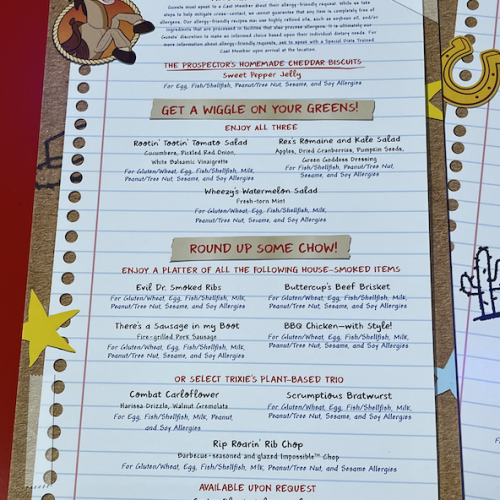 Guests must speak to a Cast Member about their allergy-friendly request. While we
take steps to help mitigate cross-contact, we cannot guarantee that any item is completely free of
allergens. Our allergy-friendly recipes may use highly refined oils, such as soybean oil, and/or
ingredients that are processed in facilities that also process allergens. It is ultimately our
Guests' discretion to make an informed choice based upon their individual dietary needs. For
more information about allergy-friendly requests, ask to speak with a Special Diets Trained
Cast Member upon arrival at the location.
THE PROSPECTOR'S HOMEMADE CHEDDAR BISCUITS
Sweet Pepper Jelly
For Egg, Fish/Shellfish, Peanut/Tree Nut, Sesame, and Soy Allergies
GET A WIGGLE ON YOUR GREENS!
ENJOY ALL THREE
Rootin' Tootin' Tomato Salad
Cucumbers, Pickled Red Onion,
White Balsamic Vinaigrette
For Gluten/Wheat, Egg, Fish/Shellfish, Milk,
Peanut/Tree Nut, Sesame, and Soy Allergies
Rex's Romaine and Kale Salad
Apples, Dried Cranberries, Pumpkin Seeds,
Green Goddess Dressing
For Fish/Shellfish, Peanut/Tree Nut,
Sesame, and Soy Allergies
Wheezy's Watermelon Salad
Fresh-torn Mint
For Gluten/Wheat, Egg, Fish/Shellfish, Milk,
Peanut/Tree Nut, Sesame, and Soy Allergies
ROUND UP SOME CHOW!
ENJOY A PLATTER OF ALL THE FOLLOWING HOUSE-SMOKED ITEMS
Evil Dr. Smoked Ribs
For Gluten/Wheat, Egg, Fish/Shellfish, Milk,
Peanut/Tree Nut, Sesame, and Soy Allergies
Buttercup's Beef Brisket
For Gluten/Wheat, Egg, Fish/Shellfish, Milk,
Peanut/Tree Nut, Sesame, and Soy Allergies
There's a Sausage in my Boot
Fire-grilled Pork Sausage
For Gluten/Wheat, Egg, Fish/Shellfish, Milk,
Peanut/Tree Nut, Sesame, and Soy Allergies
BBQ Chicken—with Style!
For Gluten/Wheat, Egg, Fish/Shellfish, Milk,
Peanut/Tree Nut, Sesame, and Soy Allergies
OR SELECT TRIXIE'S PLANT-BASED TRIO
Combat Carloflower
Harissa Drizzle, Walnut Gremolata
For Egg, Fish/Shellfish, Milk, Peanut,
and Soy Allergies
Scrumptious Bratwurst
For Gluten/Wheat, Egg, Fish/Shellfish, Milk,
Peanut/Tree Nut, Sesame, and Soy Allergies
Rip Roarin' Rib Chop
Barbecue-seasoned and glazed Impossible™ Chop
For Gluten/Wheat, Egg, Fish/Shellfish, Milk, Peanut/Tree Nut, and Sesame Allergies
AVAILABLE UPON REQUEST